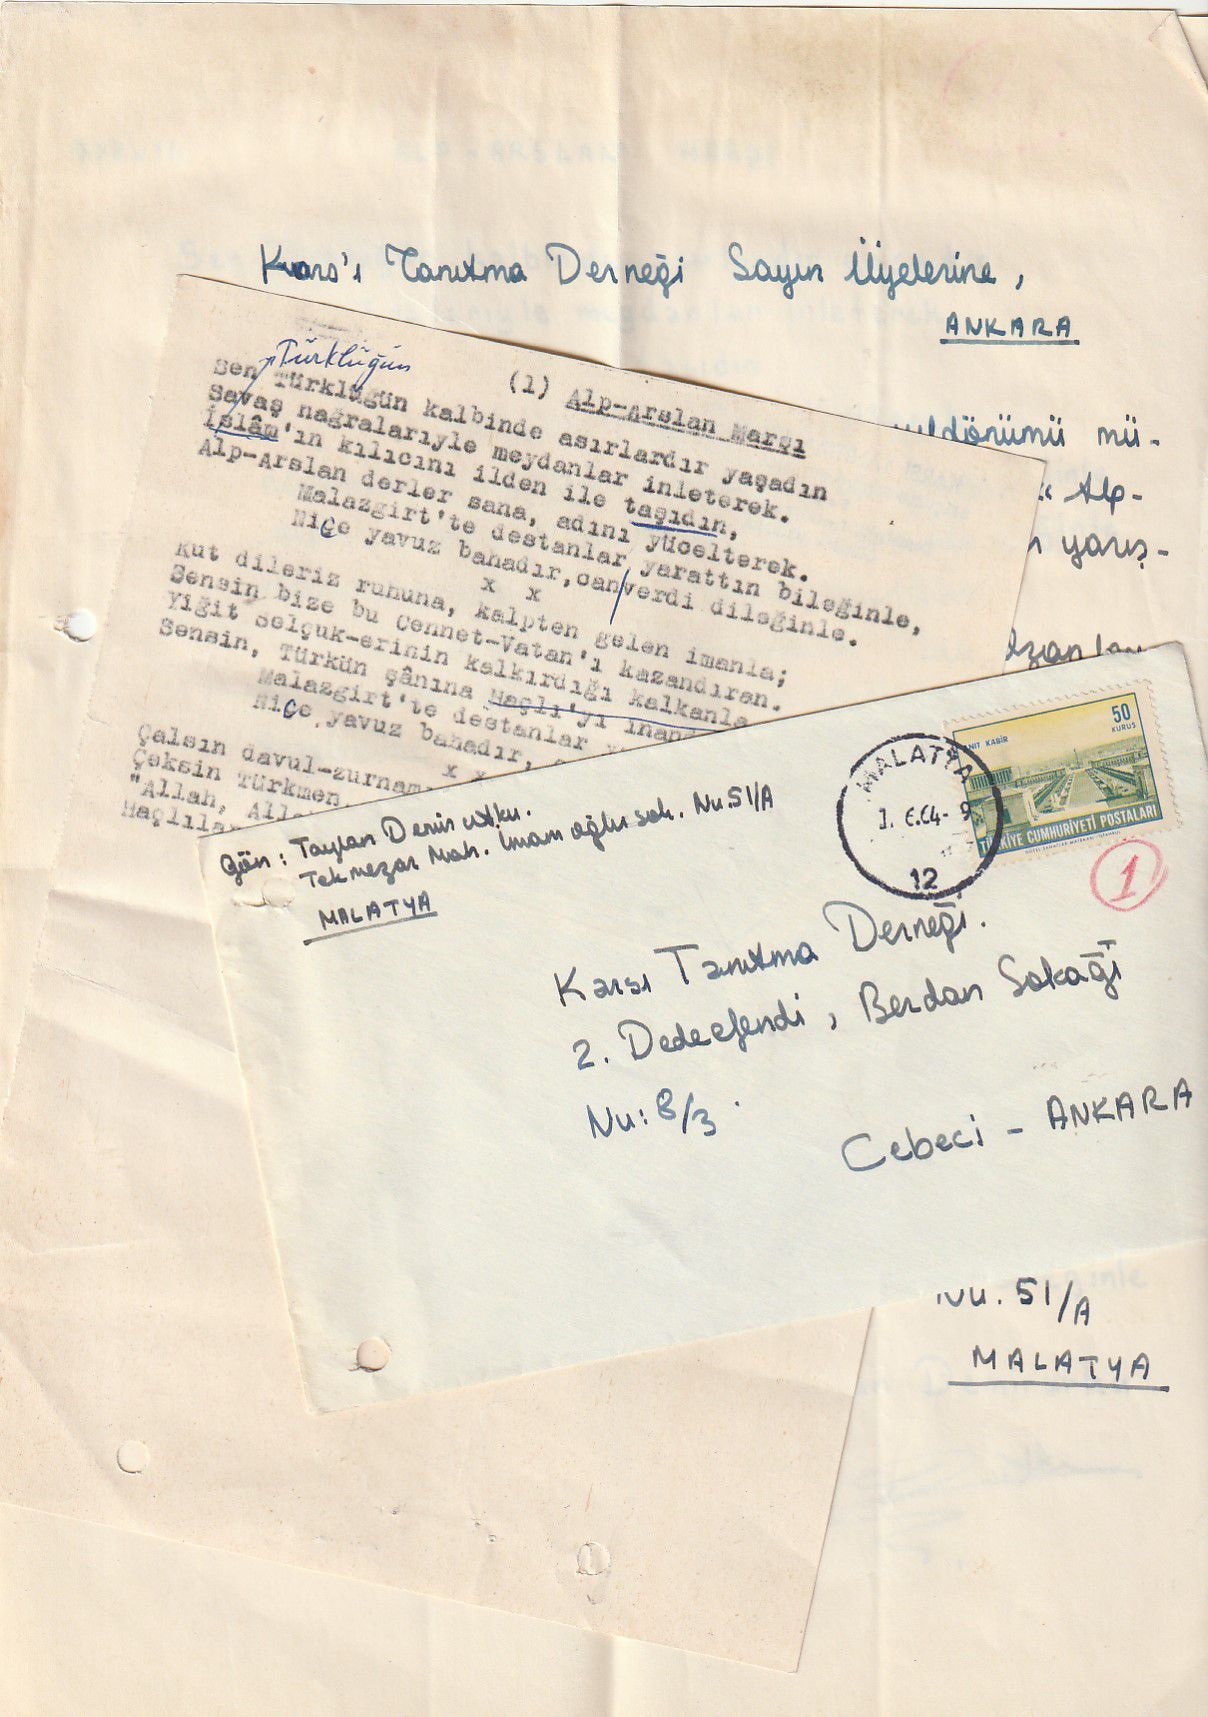 Kars'ı Tanıtma Derneği Sayın Üyelerine,
ANKARA
yıldönümü mü-
Alp-
yarış-
Türklüğün
(1) Alp-Arslan Marşı
Sen Türklüğün kalbinde asırlardır yaşadın
Savaş nağralarıyle meydanlar inleterek.
İslâm'ın kılıcını ilden ile taşıdın,
Alp-Arslan derler sana, adını yücelterek.
Malazgirt'te destanlar yarattın bileğinle,
Niçe yavuz bahadır,canverdi dileğinle.
x x
Kut dileriz ruhuna, kalpten gelen imanla;
Sensin bize bu Çennet-Vatan'ı kazandıran.
Yiğit Selçuk-erinin kalkırdığı kalkanla
Sensin, Türkün şânına Haçlı'yı
Malazgirt'te destanlar
Niçe yavuz bahadır,
x x
Çalsın davul-zurnam
Çeksin Türkmen
"Allah,
Gön: Taylan Demir utku.
Tekmezar Mah. İmamoğlu sok. Nu.51/A
MALATYA
MALATYA
12
ANIT KABİR
50
KURUŞ
TÜRKİYE CUMHURİYETİ POSTALARI
1
Karsı Tanıtma Derneği.
2. Dedeefendi, Berdan Sokağı
Nu: 8/3.
Cebeci - ANKARA
Nu. 51/A
MALATYA